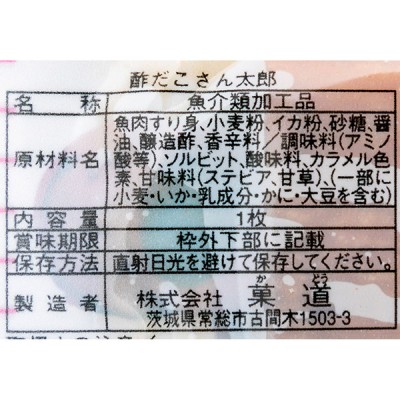 酢だこさん太郎
名称 魚介類加工品
原材料名 魚肉すり身、小麦粉、イカ粉、砂糖、醤
油、醸造酢、香辛料／調味料(アミノ
酸等)、ソルビット、酸味料、カラメル色
素、甘味料(ステビア、甘草)、(一部に
小麦・いか・乳成分・かに・大豆を含む)
内容量 1枚
賞味期限 枠外下部に記載
保存方法 直射日光を避けて保存してください。
製造者 株式会社 菓道
か どう
茨城県常総市古間木1503-3